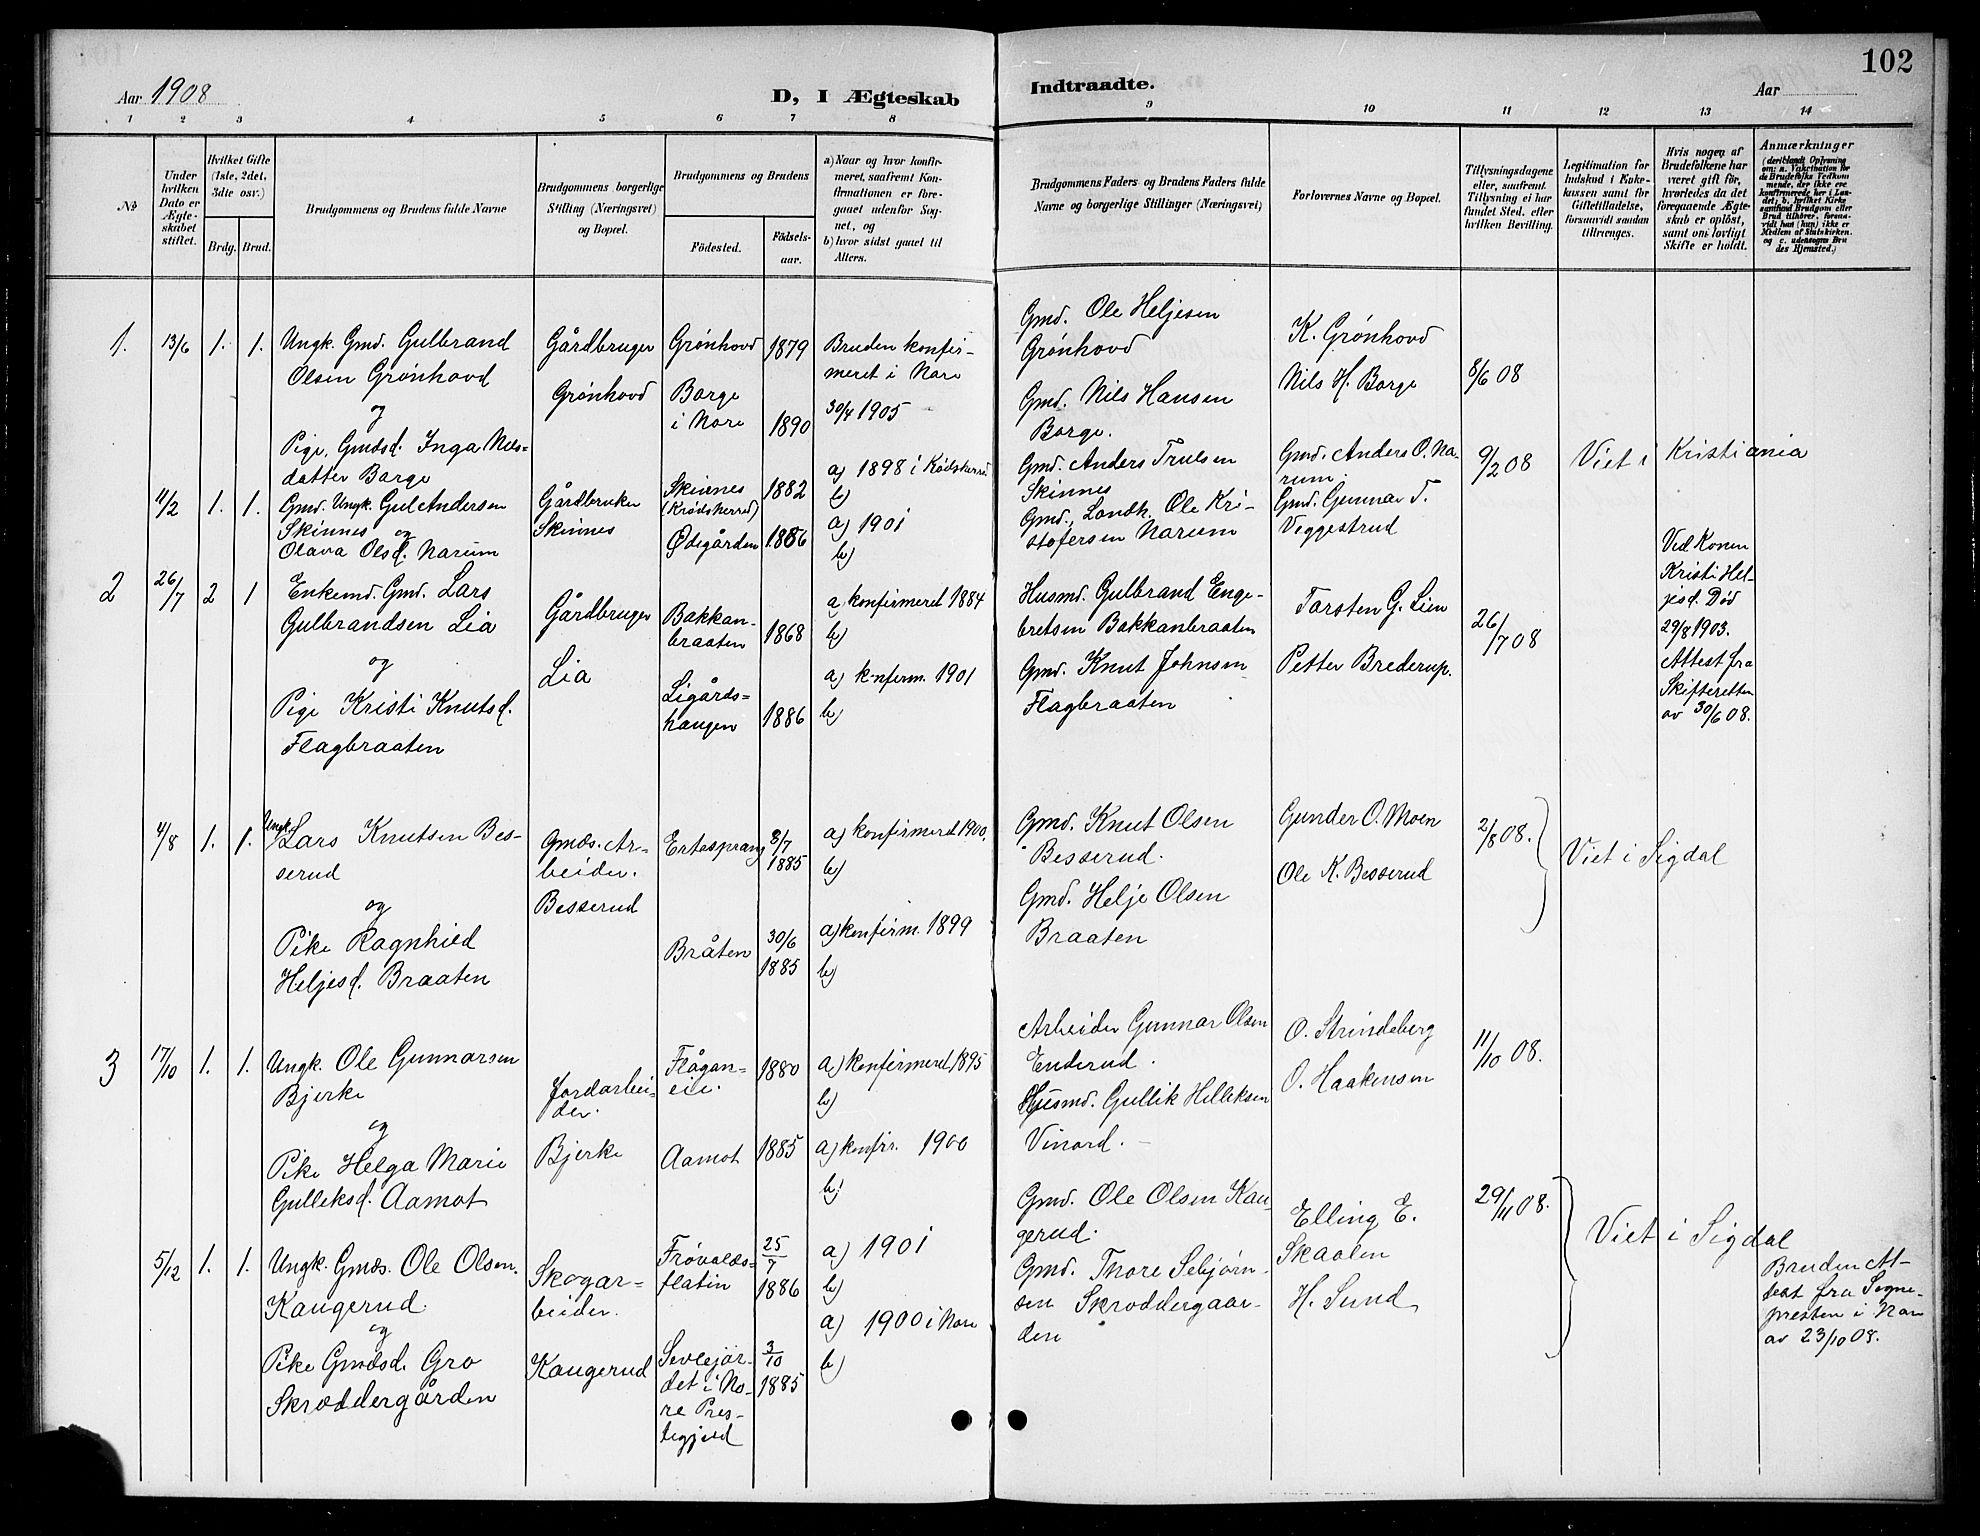 102
Aar 1908
D, I Ægteskab
Indtraadte.
Aar
1 2 3 4 5 6 7 8
9 10 11 12 13 14
No
Under hvilken Dato er Ægteskabet stiftet.
Hvilket Gifte (1ste, 2det, 3die osv.)
Brdg. Brud.
Brudgommens og Brudens fulde Navne
Brudgommens borgerlige Stilling (Næringsvei) og Bopæl.
Brudgommens og Brudens
Fødested.
Fødselsaar.
a) Naar og hvor konfirmeret, saafremt Konfirmationen er foregaaet udenfor Sognet, og
b) hvor sidst gaaet til Alters.
Brudgommens Faders og Brudens Faders fulde Navne og borgerlige Stillinger (Næringsvei)
Forlovernes Navne og Bopæl.
Tillysningsdagene eller, saafremt Tillysning ei har fundet Sted, efter hvilken Bevilling.
Legitimation for Indskud i Enkekassen samt for Giftetilladelse, forsaavidt saadan tiltrænges.
Hvis nogen af Brudefolkene har været gift før, hvorledes da det foregaaende Ægteskab er opløst, samt om lovligt Skifte er holdt.
Anmærkninger
(deriblandt Oplysning om: a. Vakcination for de Brudefolks Vedkommende, der ikke ere konfirmerede her i Landet; b. hvilket Kirkesamfund Brudgom eller Brud tilhører, forsaavidt han (hun) ikke er Medlem af Statskirken, og c. udensogns Brudes Hjemsted.)
1.
13/6
1.
1.
Ungk. Gmd. Gulbrand
Olsen Grønhovd
og
Pige, Gmdsd. Inga Nils-
datter Borge
Gårdbruger
Grønhovd
Grønhovd
Borge
i Nore
1879
1890
Bruden konfir-
meret i Nore
30/4 1905
Gmd. Ole Heljesen
Grønhovd
Gmd. Nils Hansen
Borge.
K. Grønhovd
Nils H. Borge
8/6 08
4/2
1.
1.
Gmd. Ungk. Gul Andersen
Skinnes og
Olava Olsd. Narum
Gårdbruker
Skinnes
Skinnes
(Krødsherred)
Ødegården
1882
1886
a) 1898 i Krødsherred
b)
a) 1901
b)
Gmd. Anders Trulsen
Skinnes
Gmd., Landh. Ole Kri-
stofersen Narum
Gmd. Anders O. Na-
rum,
Gmd. Gunnar T.
Veggestrud
9/2 08
Viet i Kristiania
2
26/7
2
1
Enkemd. Gmd. Lars
Gulbrandsen Lia
og
Pige Kristi Knutsd.
Flagbraaten
Gårdbruger
Lia
Bakkan-
braaten
Ligårds=
haugen
1868
1886
a) konfirmeret 1884
b)
a) konfirm. 1901
b)
Husmd. Gulbrand Enge-
bretsen Bakkanbraaten
Gmd. Knut Johnsen
Flagbraaten
Torsten G. Lien
Petter Brederup.
26/7 08
Ved Konen
Kristi Hel-
jesd. Død
29/8 1903.
Attest fra
Skifteretten
av 30/6 08.
4/8
1.
1.
Ungk. Lars Knutsen Bes-
serud
og
Pike Ragnhild
Heljesd. Braaten
Gmds. Ar-
beider.
Besserud
Ertesprang
Bråten
8/7
1885
30/6
1885
a) konfirmeret 1900.
b)
a) konfirm. 1899
b)
Gmd. Knut Olsen
Besserud.
Gmd. Helje Olsen
Braaten
Gunder O. Moen
Ole K. Besserud
2/8 08.
Viet i Sigdal
3
17/10
1.
1.
Ungk. Ole Gunnarsen
Bjerke
og
Pike Helga Marie
Gulleksd. Aamot
Jordarbei-
der.
Bjerke
Flågan-
eie.
Aamot
1880
1885
a) konfirmeret 1895
b)
a) konfir. 1900
b)
Arbeider Gunnar Olsen
Enderud.
Husmd. Gullik Helleksen
Vinord.
O. Strindeberg
O. Haakensen
11/10 08.
5/12
1.
1.
Ungk. Gmds. Ole Olsen
Kaugerud
og
Pike Gmdsd. Gro
Skrøddergården
Skogar-
beider.
Kaugerud
Frøvolds-
flatin
Sevlejor-
det i No-
re Pres-
tegjeld
25/7
1886
3/10
1885
a) 1901
b)
a) 1900 i Nore
b)
Gmd. Ole Olsen Kau-
gerud.
Gmd. Thore Sebjørn-
sen Skrøddergaar-
den
Elling E.
Skaalen
H. Sund
29/11 08.
Viet i Sigdal
Bruden At-
test fra Sogne-
presten i Nore
av 23/10 08.